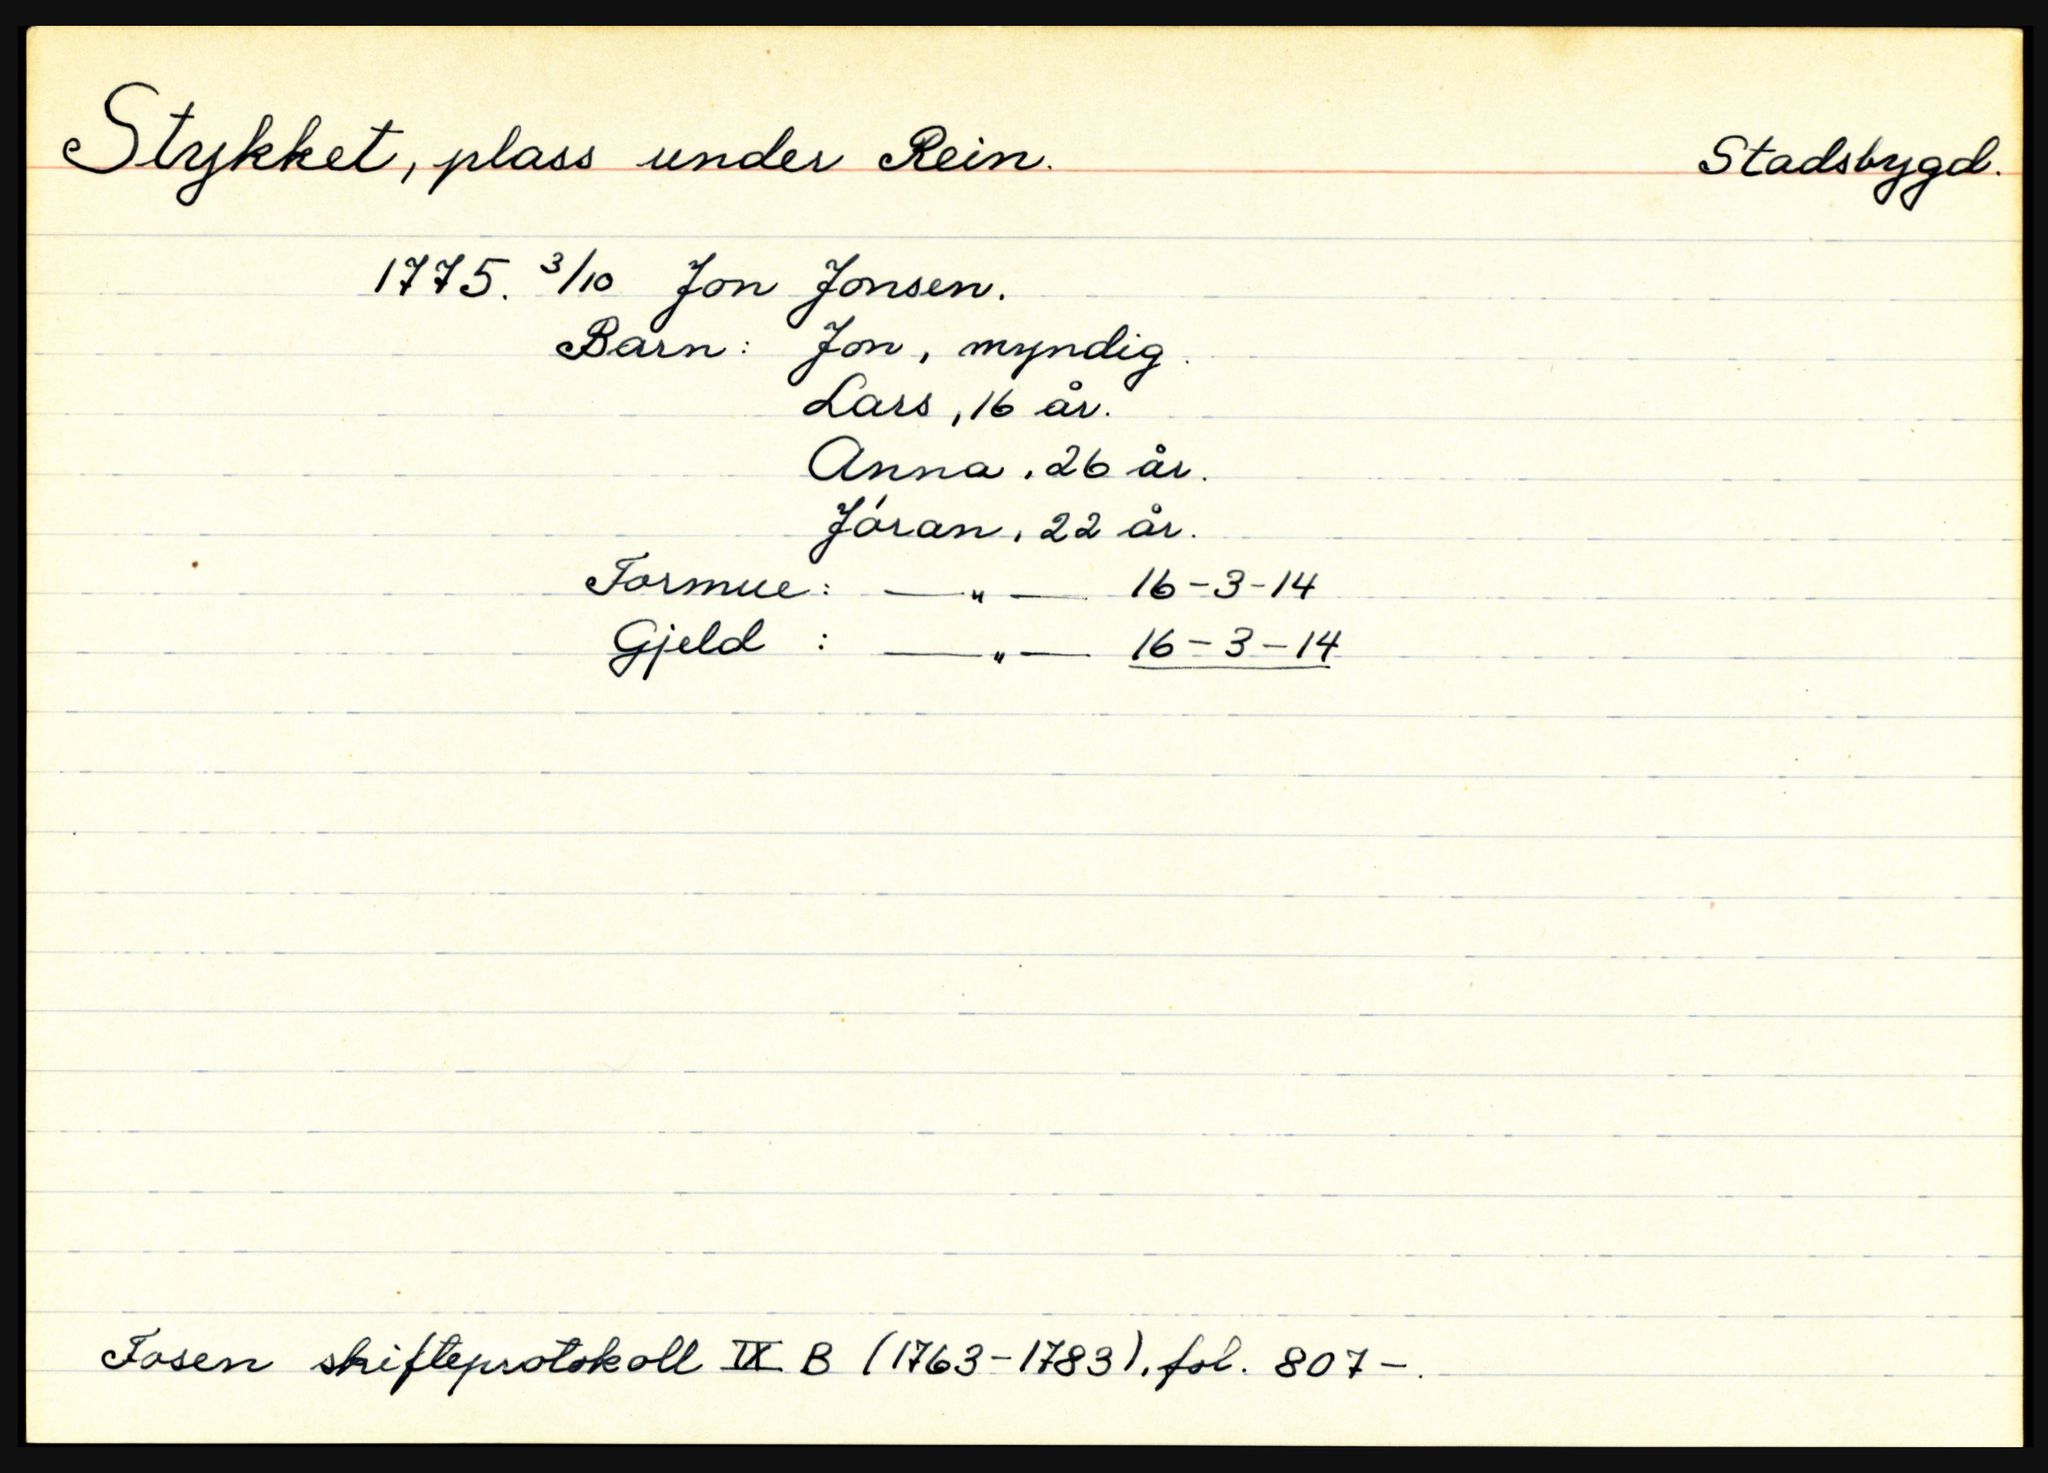 Stykket, plass under Rein. Stadsbygd.
1775. 3/10 Jon Jonsen.
Barn: Jon, myndig.
Lars, 16 år.
Anna, 26 år.
Jóran, 22 år.
Formue: —"— 16-3-14
Gjeld : —"— 16-3-14
Fosen skifteprotokoll IX B (1763-1783), fol. 807-.